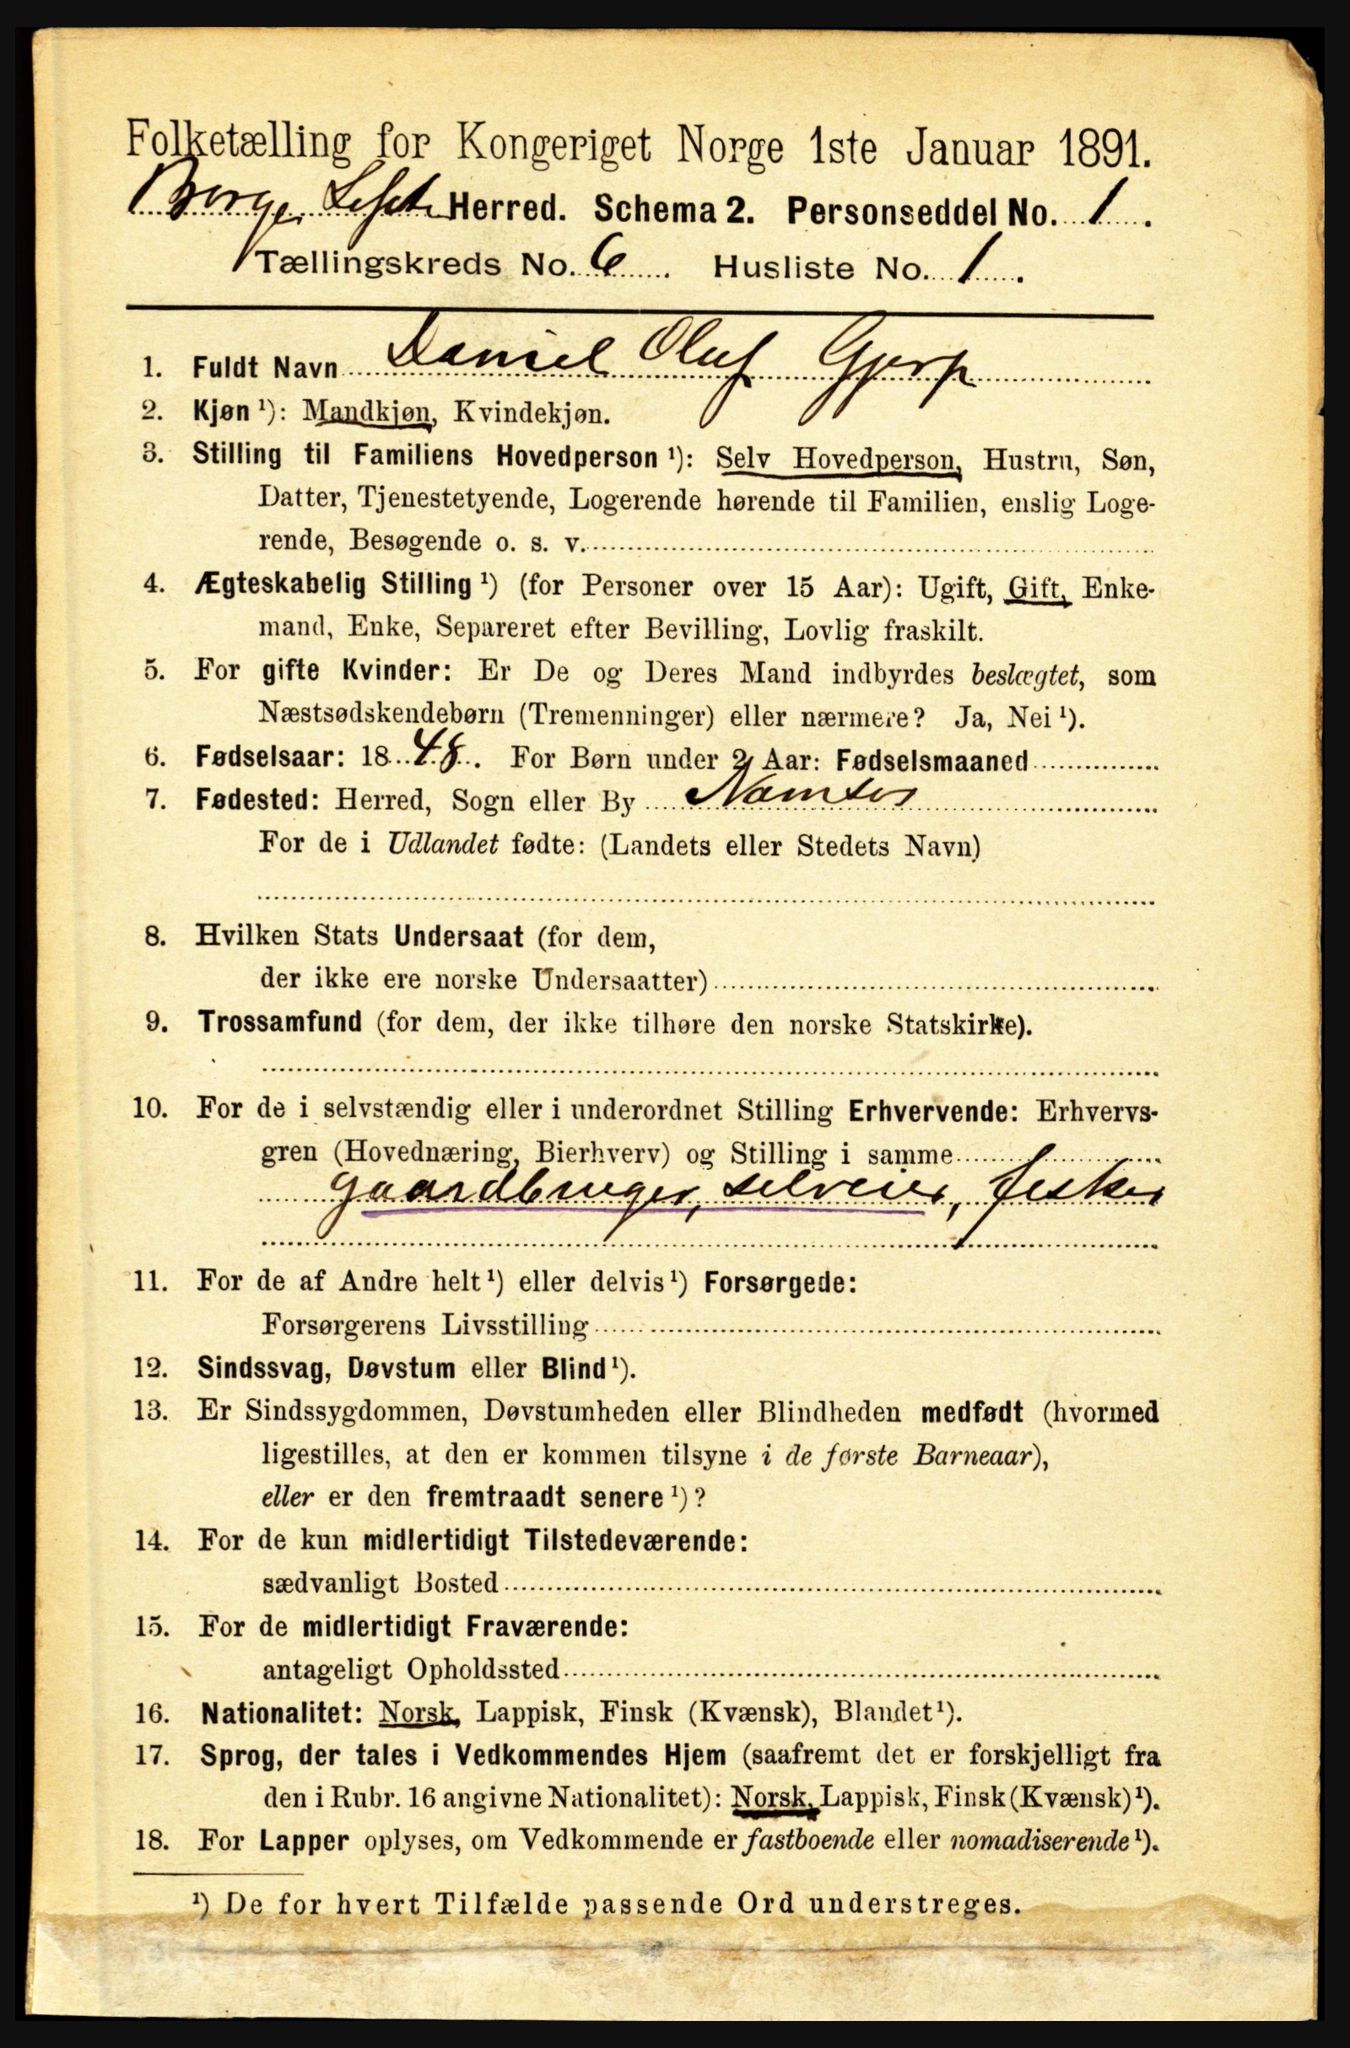 Folketælling for Kongeriget Norge 1ste Januar 1891.
Borge Herred. Schema 2. Personseddel No. 1.
Tællingskreds No. 6. Husliste No. 1.
1. Fuldt Navn Daniel Oluf
2. Kjøn¹): Mandkjøn, Kvindekjøn.
3. Stilling til Familiens Hovedperson¹): Selv Hovedperson, Hustru, Søn,
Datter, Tjenestetyende, Logerende hørende til Familien, enslig Loge-
rende, Besøgende o. s. v.
4. Ægteskabelig Stilling¹) (for Personer over 15 Aar): Ugift, Gift, Enke-
mand, Enke, Separeret efter Bevilling, Lovlig fraskilt.
5. For gifte Kvinder: Er De og Deres Mand indbyrdes beslægtet, som
Næstsødskendebørn (Tremenninger) eller nærmere? Ja, Nei¹).
6. Fødselsaar: 1848. For Børn under 2 Aar: Fødselsmaaned
7. Fødested: Herred, Sogn eller By Namsos
For de i Udlandet fødte: (Landets eller Stedets Navn)
8. Hvilken Stats Undersaat (for dem,
der ikke ere norske Undersaatter)
9. Trossamfund (for dem, der ikke tilhøre den norske Statskirke).
10. For de i selvstændig eller i underordnet Stilling Erhvervende: Erhvervs-
gren (Hovednæring, Bierhverv) og Stilling i samme
gaardbruger, selveier, fisker
11. For de af Andre helt¹) eller delvis¹) Forsørgede:
Forsørgerens Livsstilling
12. Sindssvag, Døvstum eller Blind¹).
13. Er Sindssygdommen, Døvstumheden eller Blindheden medfødt (hvormed
ligestilles, at den er kommen tilsyne i de første Barneaar),
eller er den fremtraadt senere¹)?
14. For de kun midlertidigt Tilstedeværende:
sædvanligt Bosted
15. For de midlertidigt Fraværende:
antageligt Opholdssted
16. Nationalitet: Norsk, Lappisk, Finsk (Kvænsk), Blandet¹).
17. Sprog, der tales i Vedkommendes Hjem (saafremt det er forskjelligt fra
den i Rubr. 16 angivne Nationalitet): Norsk, Lappisk, Finsk (Kvænsk)¹).
18. For Lapper oplyses, om Vedkommende er fastboende eller nomadiserende¹).
¹) De for hvert Tilfælde passende Ord understreges.